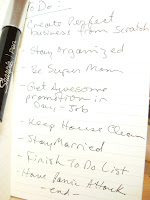 To Do:
- Create Perfect
business from Scratch
- Stay organized
- Be Super Mom
- Get Awesome
promotion in
Day-Job
- Keep House Clean
- Stay Married
- Finish To Do List
- Have Panic Attack
- end -
Sharpie